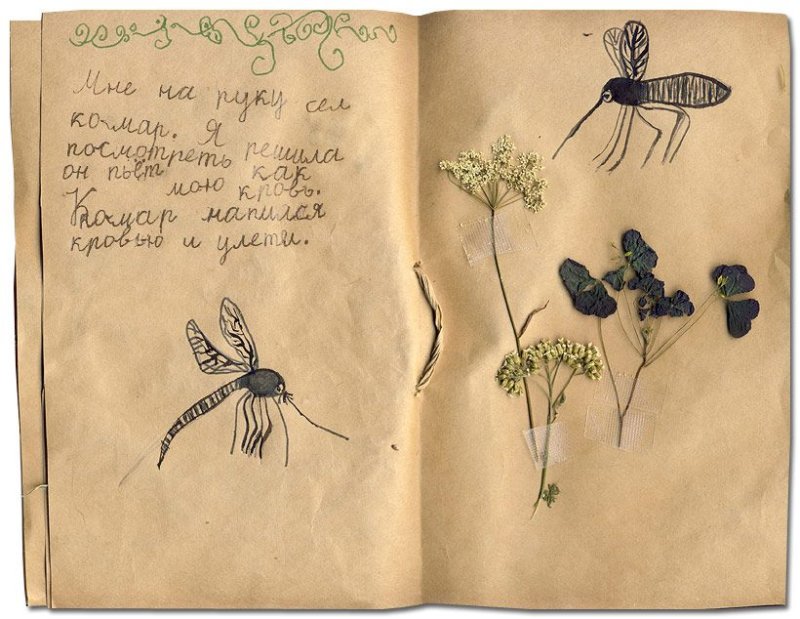 Мне на руку сел
комар. Я
посмотреть решила
он пьёт как
мою кровь.
Комар напился
кровью и улетил.